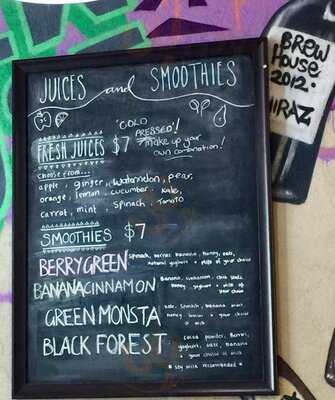 JUICES and SMOOTHIES
"COLD PRESSED!
FRESH JUICES $7
make up your
own combination!
choose from...
apple, ginger, watermelon, pear,
orange, lemon, cucumber, kale,
carrot, mint, spinach, tomato
SMOOTHIES $7
BERRYGREEN
spinach, berries, banana, honey, oats,
natural yoghurt + milk of your choice
BANANACINNAMON
Banana, cinnamon, chia seeds
honey, yoghurt + milk of
your choice
GREEN MONSTA
kale, spinach, banana, mint
honey, + your choice
of milk
BLACK FOREST
cacao powder, Berries,
yoghurt, oats, banana
+ your choice of milk
* soy milk recommended *
BREW
HOUSE
2012.
IRAZ